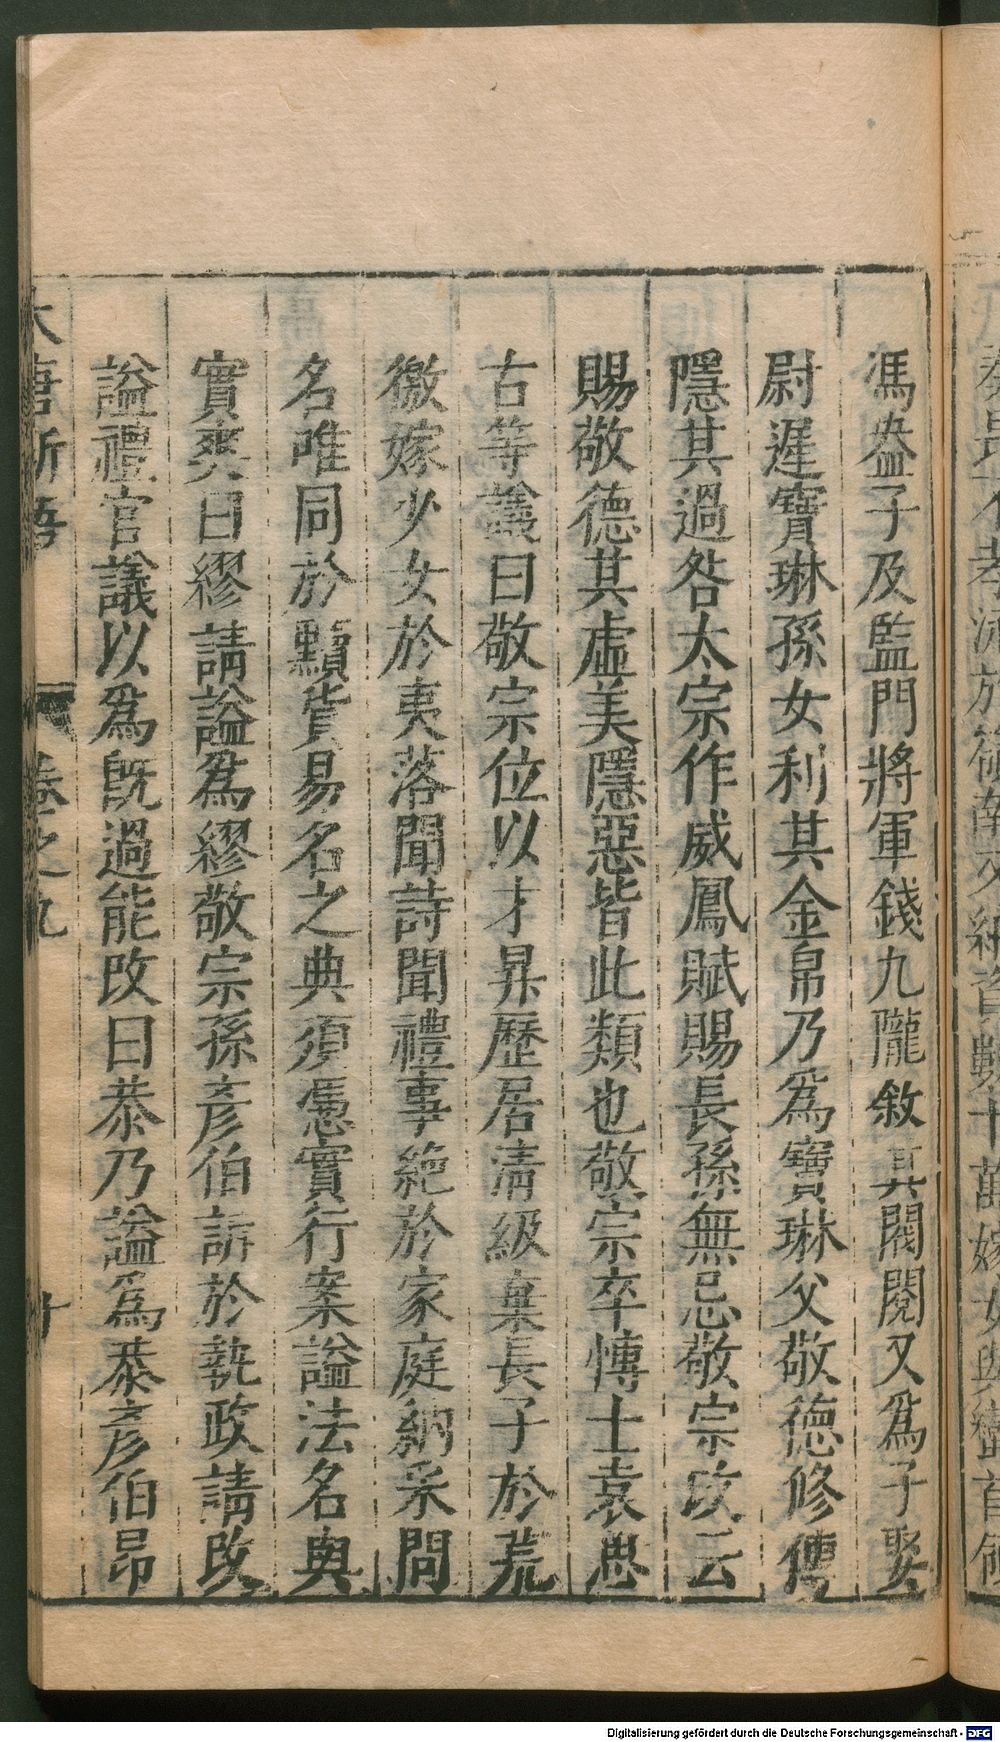 馮盎子及監門將軍錢九隴敘其閥閱又爲子娶
尉遲寶琳孫女利其金帛乃爲寶琳父敬德修傳
隱其過咎太宗作威鳳賦賜長孫無忌敬宗改云
賜敬德其虛美隱惡皆此類也敬宗卒愽士袁思
古等議曰敬宗位以才昇歷居清級棄長子於荒
徼嫁少女於夷落聞詩聞禮事絶於家庭納采問
名唯同於黷貨易名之典須憑實行案謚法名與
實爽曰繆請謚爲繆敬宗孫彥伯訴於執政請改
謚禮官議以爲旣過能改曰恭乃謚爲恭彥伯昂
大唐新語 卷之九
Digitalisierung gefördert durch die Deutsche Forschungsgemeinschaft - DFG